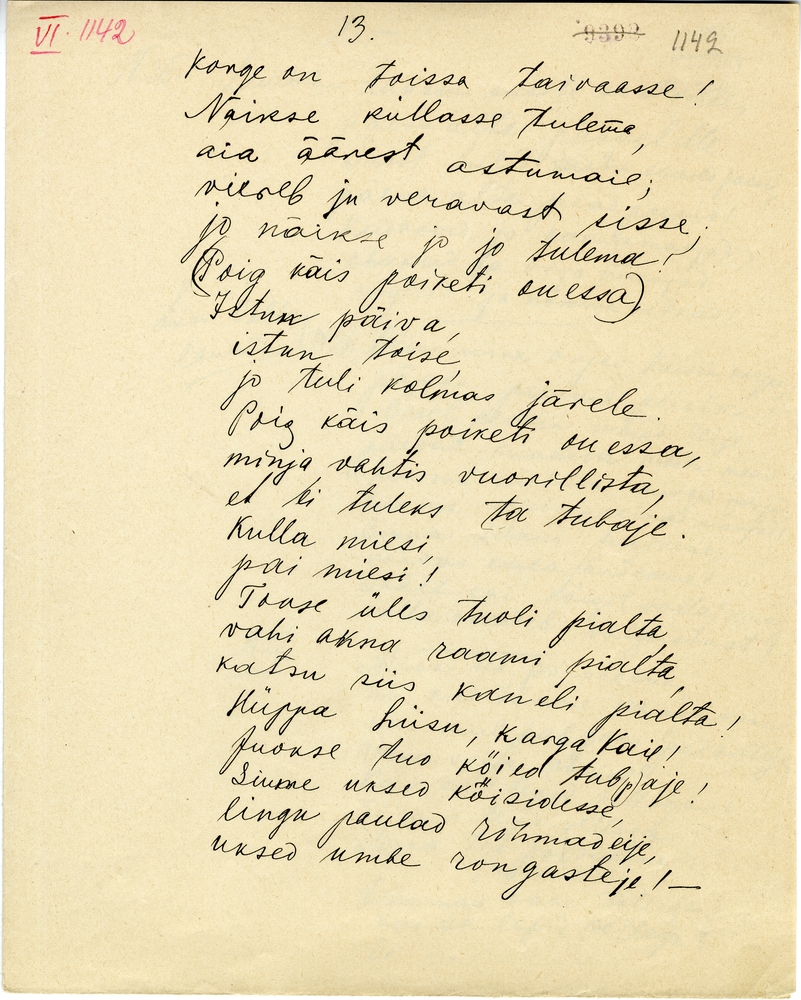 VI. 1142 13. 9393 1142
korge on toissa taivaasse!
Näikse küllasse tulema,
aia äärest astumaie;
viereb ju veravast sisse;
jo näikse jo jo tulema!
(Poig käis poiketi ouessa)
Istun päiva,
istun toise,
jo tuli kolmas järele.
Poig käis poiketi ouessa,
minja vahtis vuorillista,
et ei tuleks ta tubaje.
Kulla miesi,
pai miesi!
Touse üles tuoli pialta,
vahi akna raami pialta,
katsu siis kaneli pialta!
Hüppa Liisu, karga Kaie!
Juokse tuo köied tub(p)aje!
Siume uksed köisidesse,
lingu paulad röhmadeije,
uksed umbe rongasteje! —